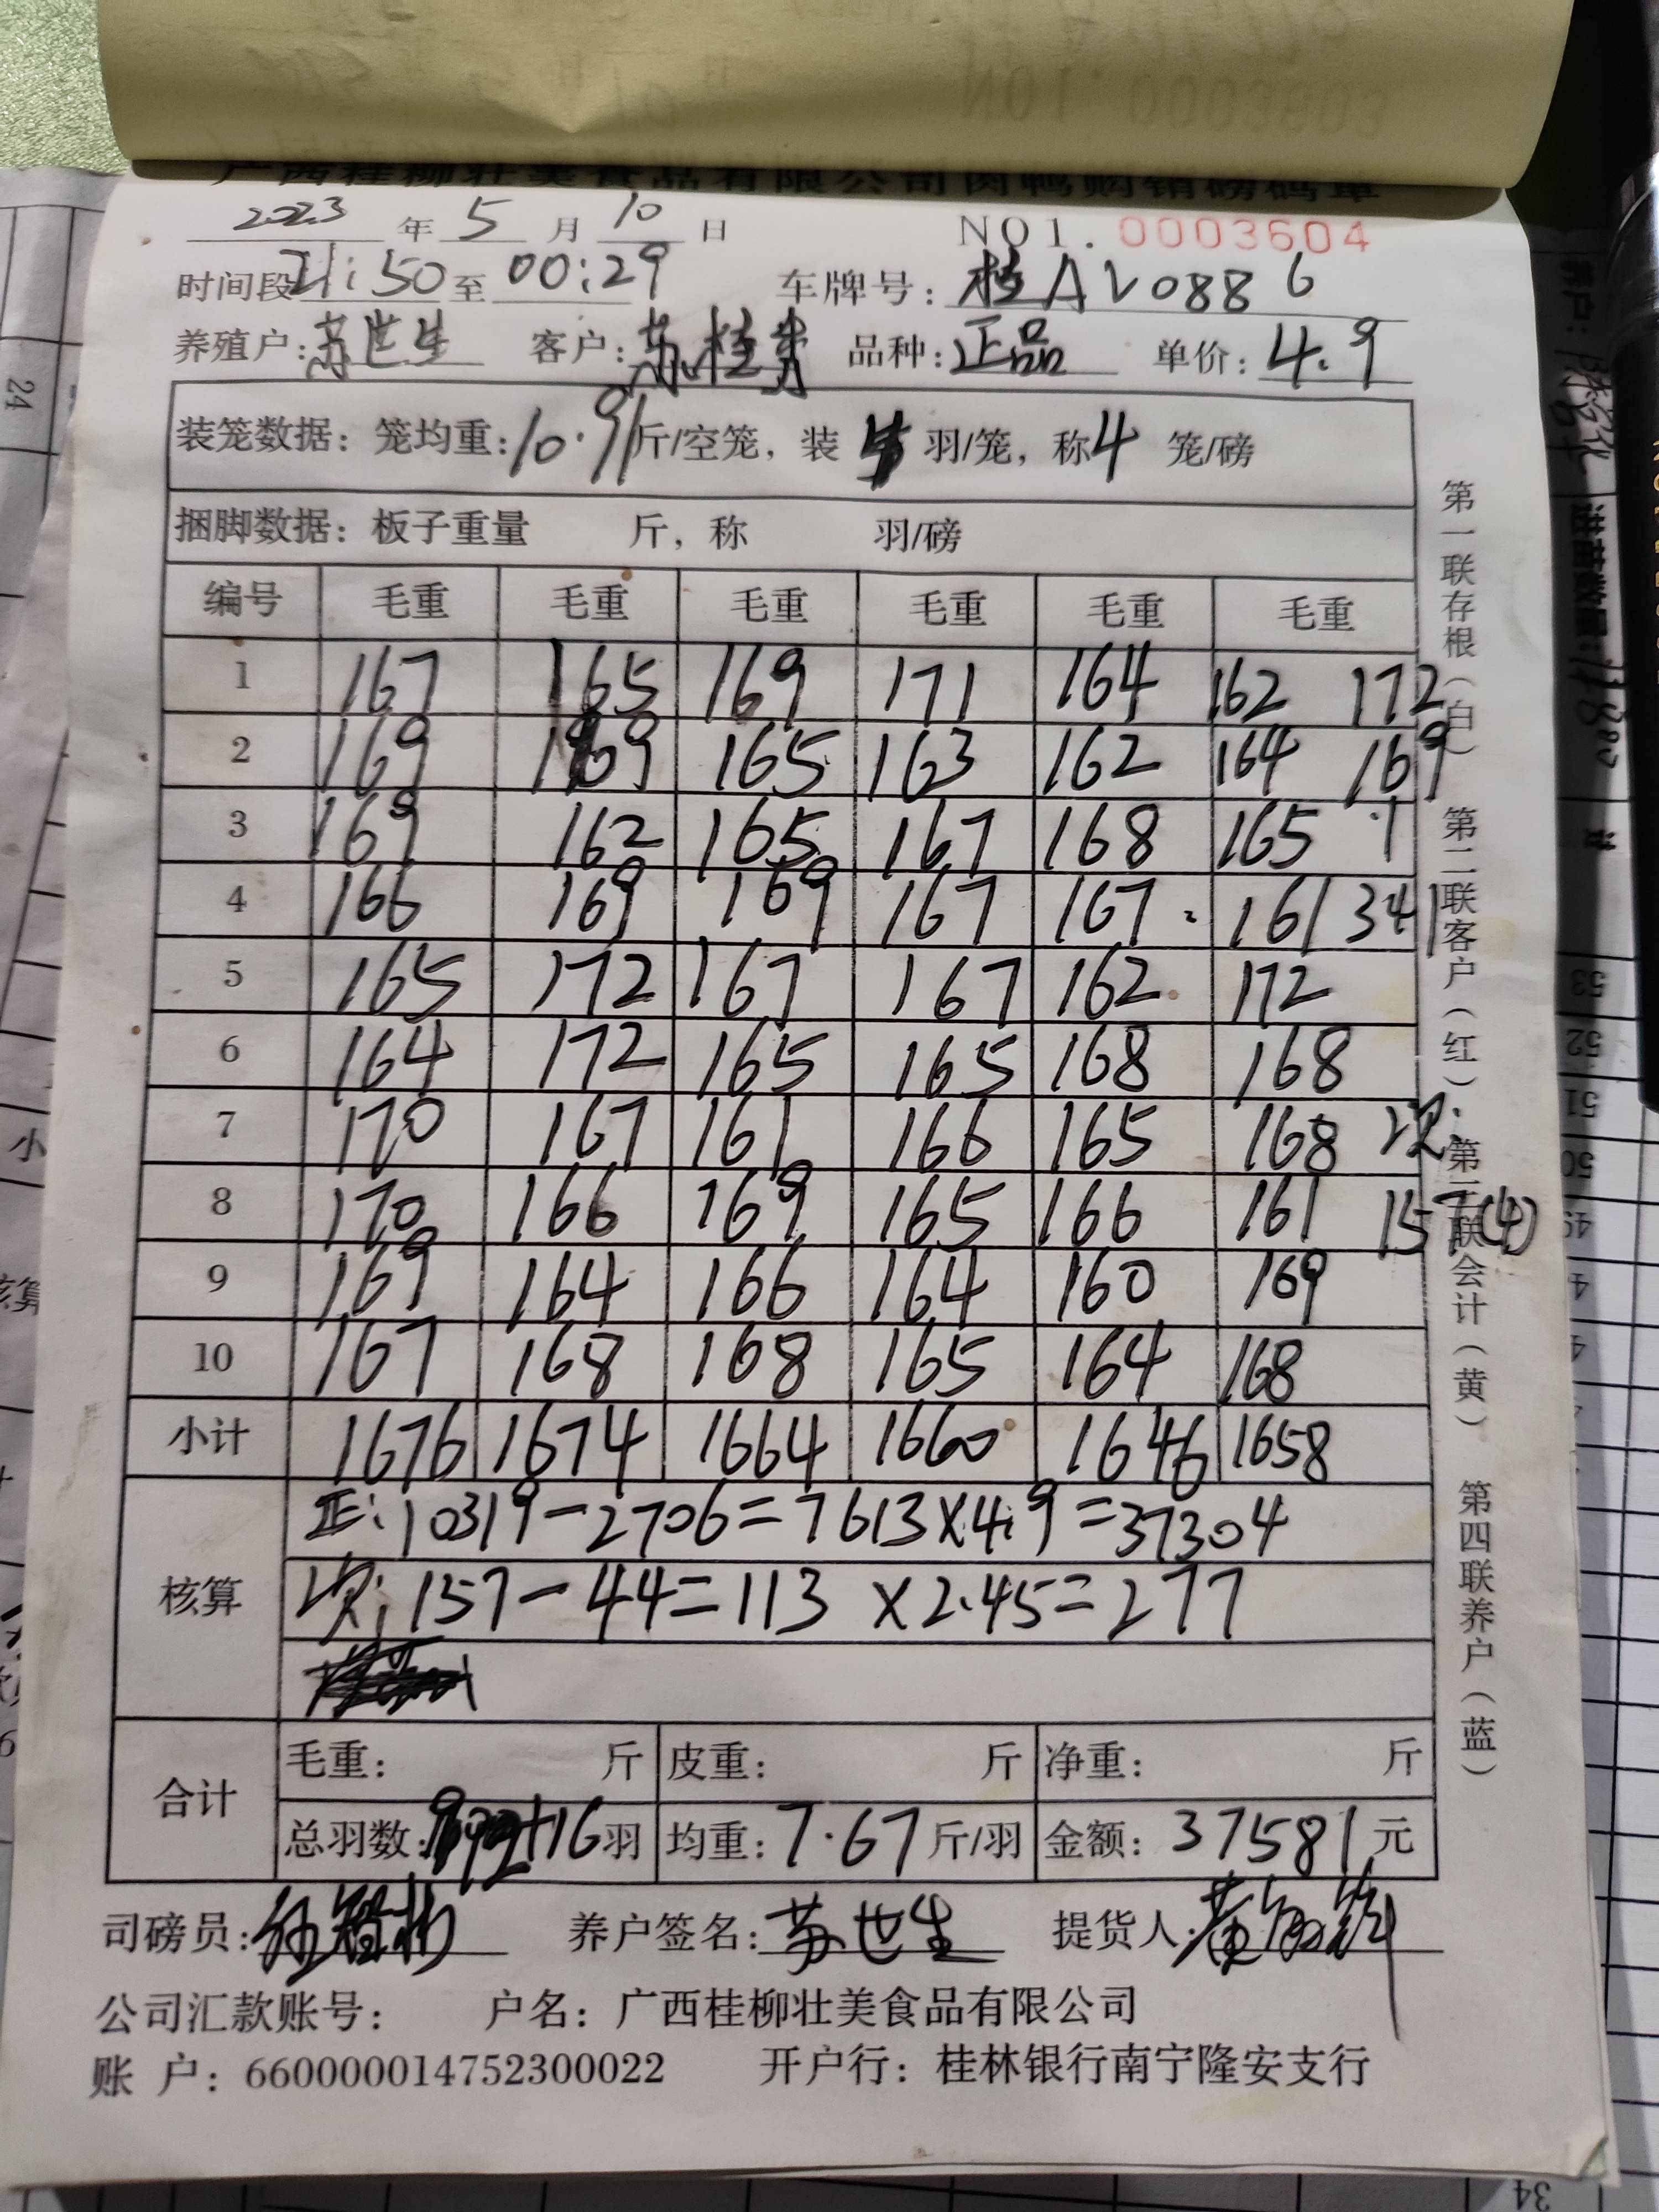 广西桂柳壮美食品有限公司肉鸭购销磅码单
2023 年 5 月 10 日 NO1. 0003604
时间段 21:50 至 00:29 车牌号: 桂AV0886
养殖户: 苏世生 客户: 苏桂 品种: 正品 单价: 4.9
装笼数据: 笼均重: 10.91 斤/空笼, 装 羽/笼, 称 4 笼/磅
捆脚数据: 板子重量 斤, 称 羽/磅
编号 毛重 毛重 毛重 毛重 毛重 毛重
1 167 165 169 171 164 162 172
2 169 169 165 163 162 164 169
3 169 162 165 167 168 165
4 166 169 169 167 167 161 341
5 165 172 167 167 162 172
6 164 172 165 165 168 168
7 170 167 161 166 165 168 次:
8 170 166 169 165 166 161 157(4)
9 169 164 166 164 160 169
10 167 168 168 165 164 168
小计 1676 1674 1664 1660 1646 1658
核算
正: 10319-2706=7613×4.9=37304
次: 157-44=113 ×2.45=277
合计
毛重: 斤 皮重: 斤 净重: 斤
总羽数: 992+16 羽 均重: 7.67 斤/羽 金额: 37581 元
司磅员: 养户签名: 苏世生 提货人: 黄
公司汇款账号: 户名: 广西桂柳壮美食品有限公司
账 户: 660000014752300022 开户行: 桂林银行南宁隆安支行
第一联存根(白) 第二联客户(红) 第三联会计(黄) 第四联养户(蓝)